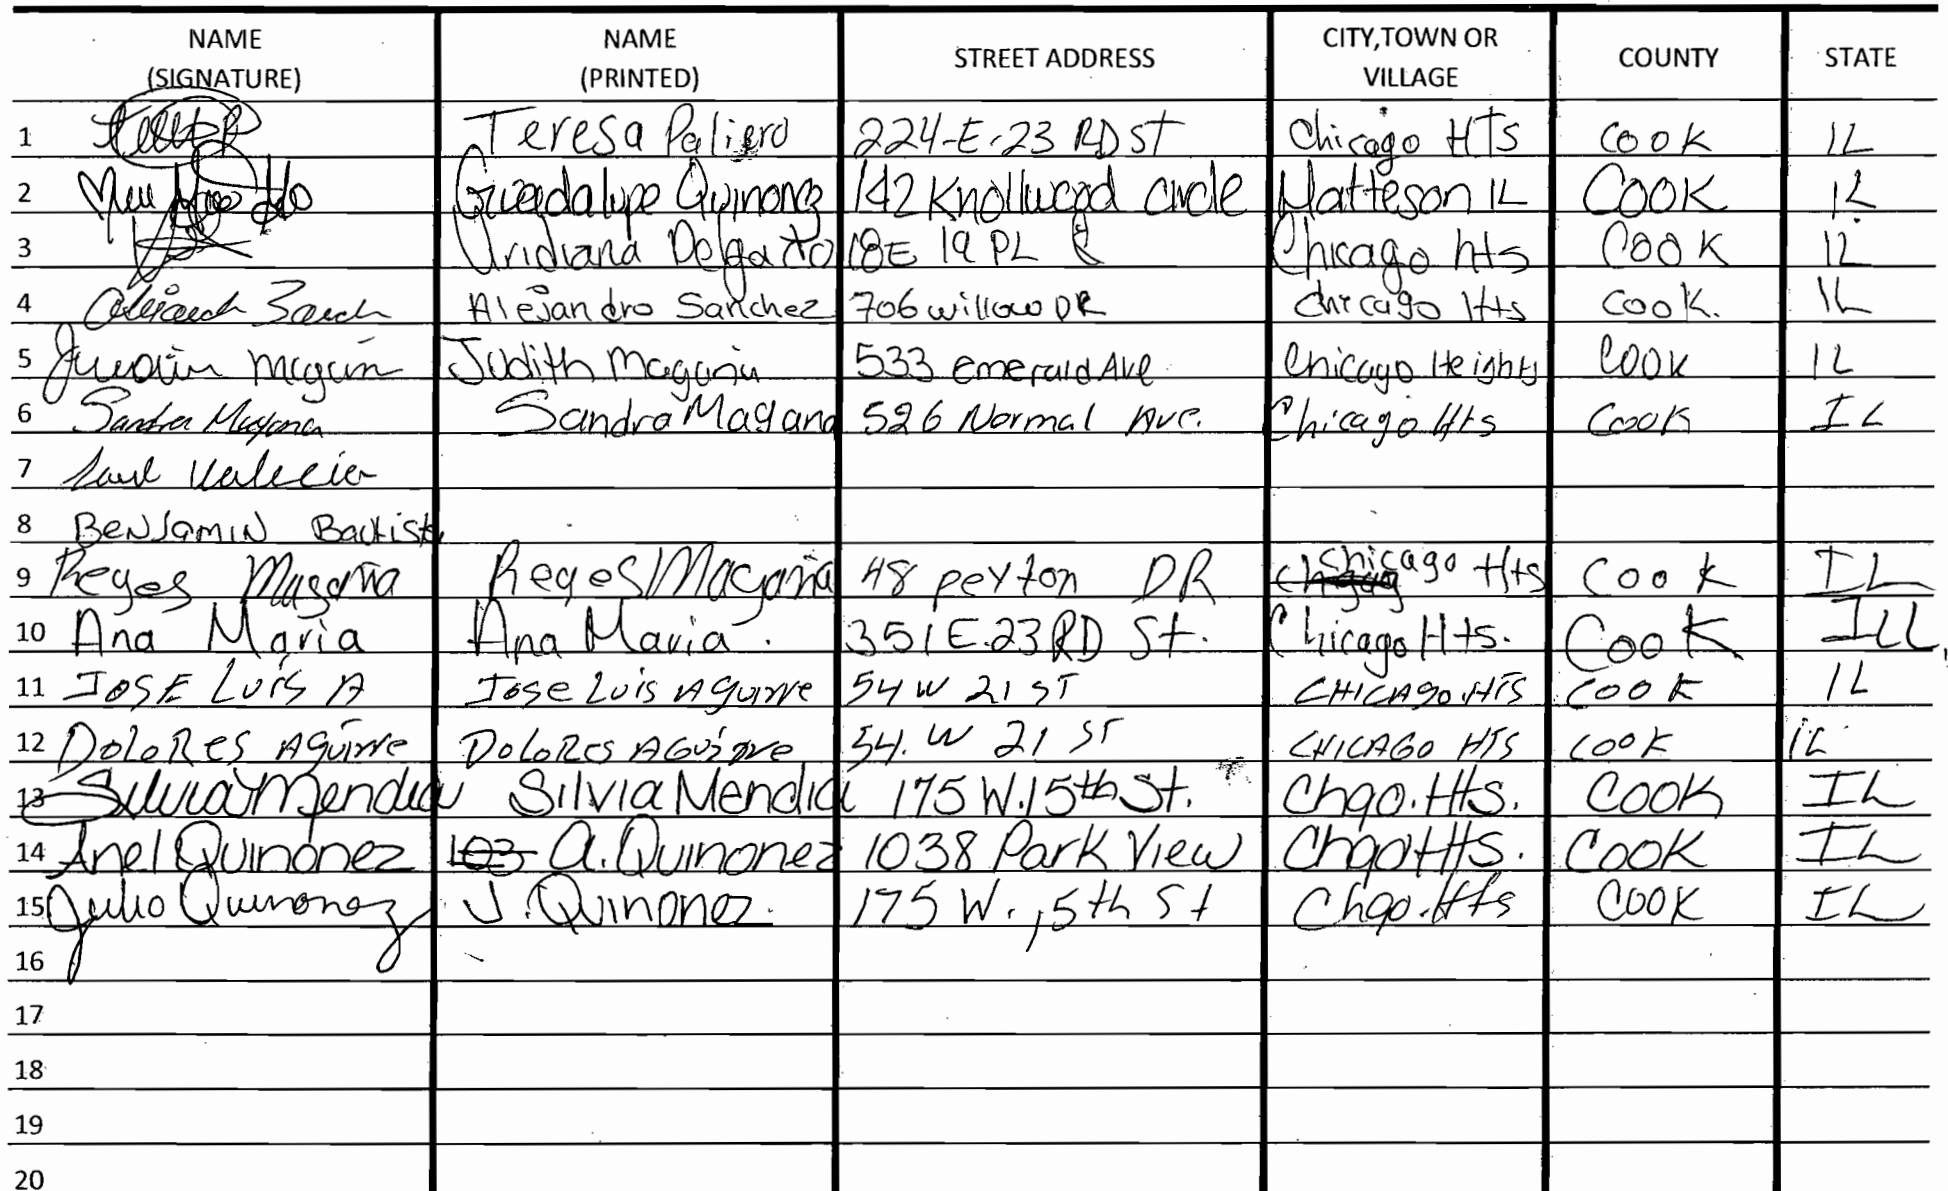 NAME (SIGNATURE) NAME (PRINTED) STREET ADDRESS CITY,TOWN OR VILLAGE COUNTY STATE
1 Teresa Paliero 224-E-23 RD ST Chicago HTS COOK IL
2 Guadalupe Quinonez 142 Knollwood circle Matteson IL COOK IL
3 Uridiana Delgado 18E 19 PL Chicago hts COOK IL
4 Alejandro Sanchez 706 willow DR Chicago Hts COOK. IL
5 Judith Magaña 533 Emerald Ave Chicago Heights COOK IL
6 Sandra Magana Sandra Magana 526 Normal Ave. Chicago Hts COOK IL
7
8 BENJAMIN Bautista
9 Reyes Magaña Reyes Magaña 48 peyton DR Chicago Hts COOK IL
10 Ana Maria Ana Maria. 351 E.23RD St. Chicago Hts. COOK ILL
11 JOSE LUIS A Jose Luis Aguirre 54 W 21 ST CHICAGO.HTS COOK IL
12 DOLORES AGUIRRE DOLORES AGUIRRE 54. W 21 ST CHICAGO HTS COOK iL
13 Silvia Mendia Silvia Mendia 175 W.15th St. Chgo.Hts. COOK IL
14 Anel Quinonez 103 A. Quinonez 1038 Park View Chgo Hts. COOK IL
15 Julio Quinonez J. Quinonez. 175 W. 15th St Chgo.Hts COOK IL
16
17
18
19
20